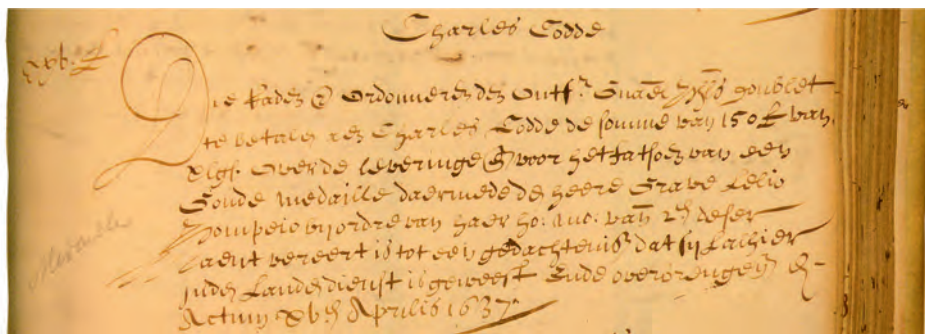 Charles Codde
Die Raden ordonneren den Ontf.r Gnael goublet
te betalen aen Charles Codde de somme van 150 £ van
xl gr. Over de leveringe en voor het fatsoen van een
Goude medaille daermede de heere Grave Lelio
Pompeio bij ordre van haer ho: van deser
Lande vereert is tot een gedachtenis dat hij alhier
in den Lande dienst is geweest Ende overbrengen
Actum xb en Aprilis 1637
Medaille